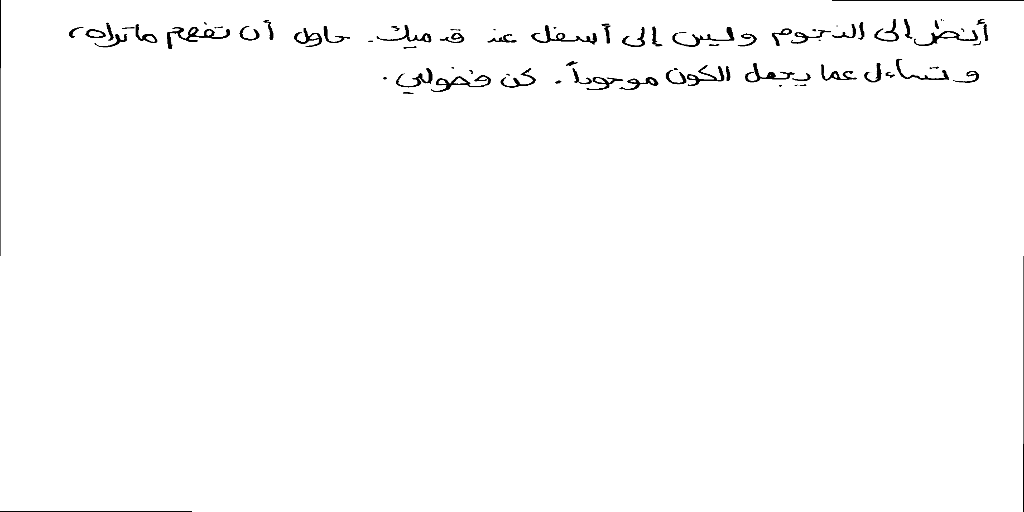 أنظر إلى النجوم وليس إلى أسفل عند قدميك. حاول أن تفهم ما تراه،
وتساءل عما يجعل الكون موجوداً. كن فضولي.